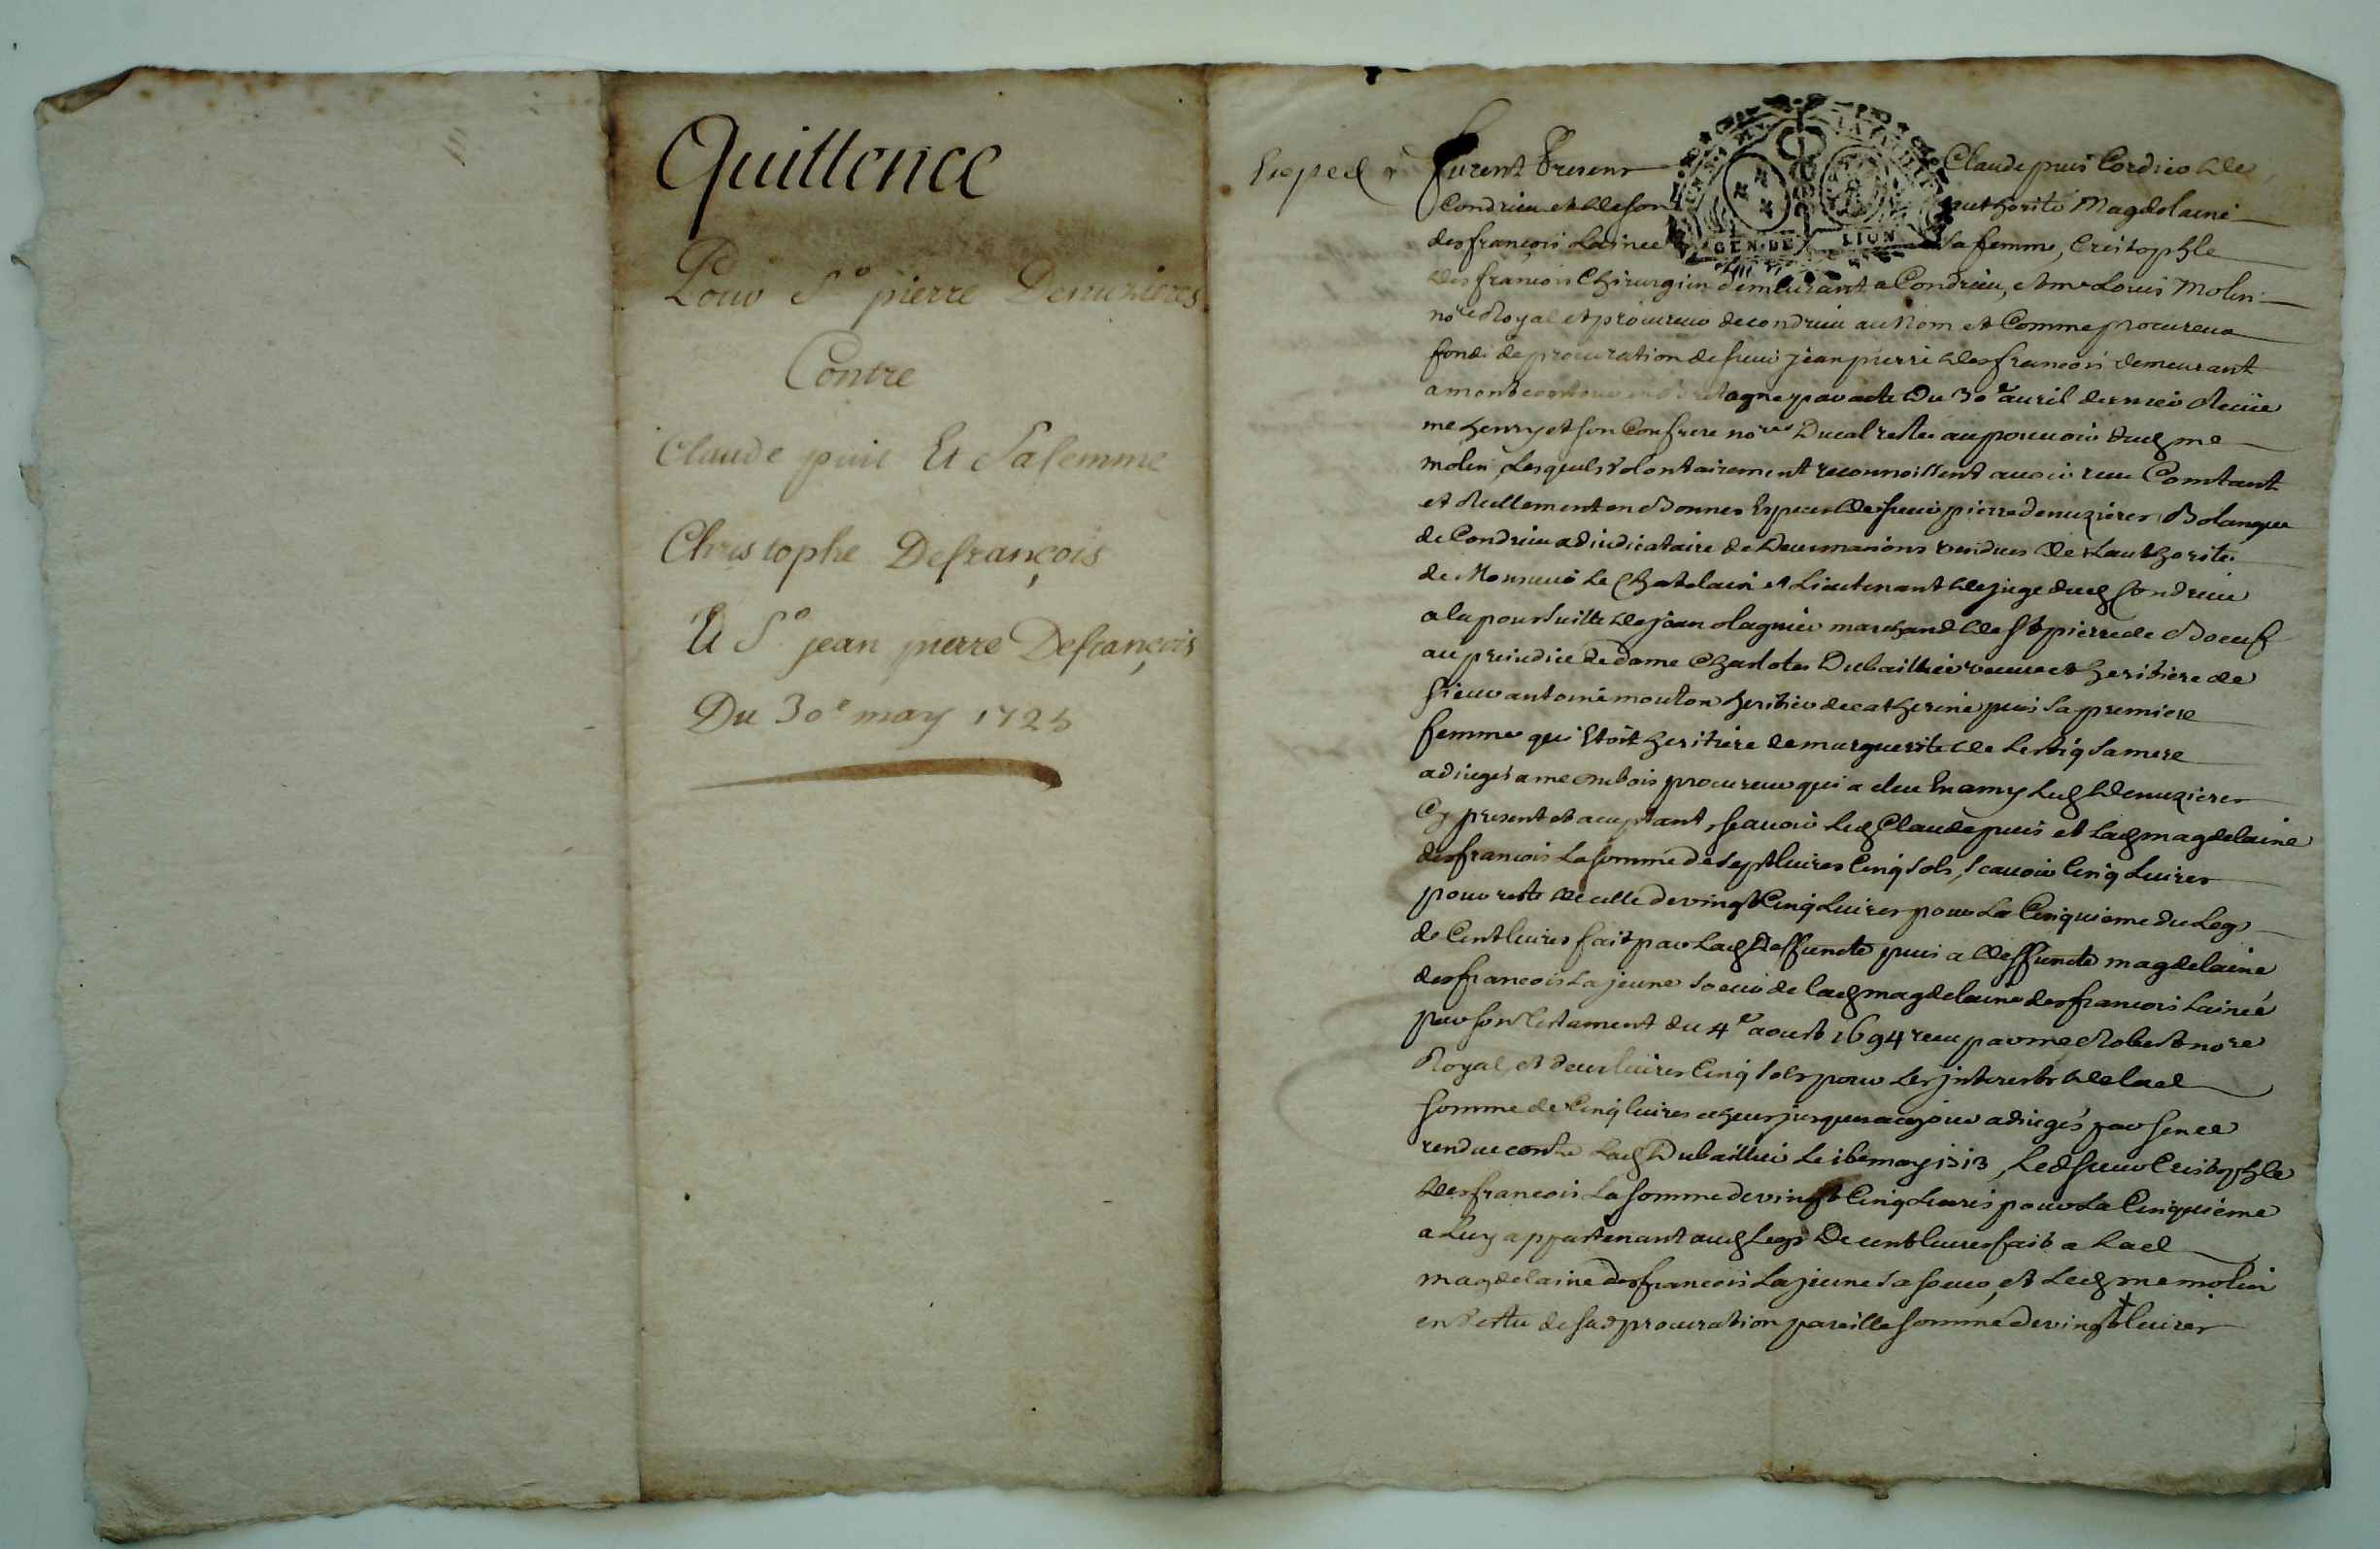 Quittence
Pour Sr pierre Denuzieres
Contre
Claude puis Et Sa femme
Christophe Defrançois
Et Sr jean pierre Defrançois
Du 30e may 1725
Exped
furent Presens Claude puis Cordier de
Condrieu et de son authorité Magdelaine
desfrançois Lainee sa femme, Cristophle
GEN. DE LION
desfrancois Chirurgien demeurant a Condrieu, et me Louis Molin
nore Royal et procureur de condrieu au Nom et Comme procureur
fondé de procuration de sieur jean pierre desfrancois demeurant
a montcontour en Bretagne par acte du 30e auril dernier Receüe
me henry et son Confrere nores Ducal restée au pouuoir dud me
molin, Lesquels Volontairement reconnoissent auoir receu Comtant
et Reellement en Bonnes Especes de sieur pierre denuzieres Bolanger
de Condrieu adiudicataire de deux maisons vendues de Lauthorité
de Monsieur Le Chatelain et Lieutenant de juge dud Condrieu
a la poursuitte de jean olagnier marchand de St pierre de Boeuf
au preiudice de dame Charlote Dubaillier veuue et heritiere de
sieur antoine mouton heritier de catherine puis sa premiere
femme qui Etoit heritiere de marguerite de sa mere
adiugés a me procureur qui a eleu En amy Led denuzieres
Cy present et aceptant, scauoir Led Claude puis et Lad magdelaine
desfrancois La somme de sept liures Cinq sols, scauoir Cinq Liures
pour reste de celle de vingt Cinq Liures pour La Cinquieme du Legs
de Cent liures fait par Lad deffuncte puis a deffuncte magdelaine
desfrancois La jeune soeur de lad magdelaine desfrancois Lainée
par son testament du 4e aoust 1694 receu par me Robert nore
Royal, et deux liures Cinq sols pour Les jnterests de lad
somme de Cinq liures echeus jusques a ce jour adiugés par sence
rendue contre Lad Dubaillier Le 16e may 1713, Led sieur Cristophle
desfrancois La somme de vingt Cinq Liures pour La Cinquieme
a Luy appartenant aud Legs De cent liures fait a Lad
magdelaine desfrancois La jeune sa soeur, et Led me molin
en Vertu de sad procuration pareille somme de vingt liures